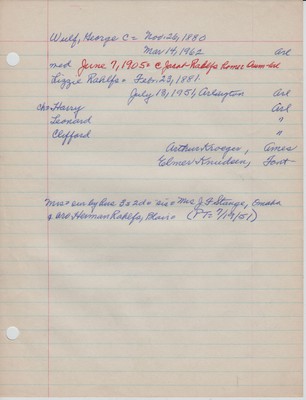 Wulf, George C = Nov. 26, 1880
Mar 14, 1962 Arl
med June 7, 1905 = c Jacob Rahlfs Romes Arm-Ard
Lizzie Rahlfs = Feb. 23, 1881
July 13, 1951, Arlington Arl
ch = Harry Arl
Leonard "
Clifford "
Arthur Kroeger, Ames
Elmer Knudsen, Font
Mrs = sur by hus 3 s 2 d = sis = Mrs J F Stange, Omaha
& bro Herman Rahlfs, Blair = (PT = 7/19/51)